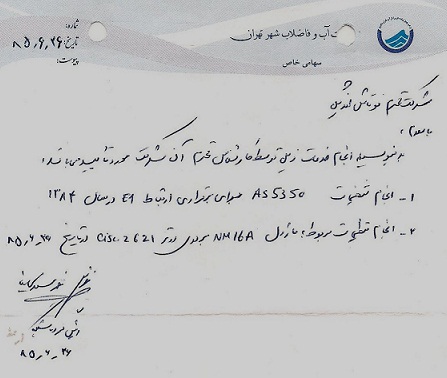 شماره:
تاریخ: ۸۵٫۶٫۲۶
پیوست:
ت آب و فاضلاب شهر تهران
سهامی خاص
شرکت محترم
با سلام،
بدینوسیله انجام خدمات زیر توسط کارشناس محترم آن شرکت مورد تأیید می‌باشد:
۱- انجام تنظیمات AS5350 جهت برقراری ارتباط E1 در سال ۱۳۸۴
۲- انجام تنظیمات مربوط به ماژول NM16A بر روی روتر Cisco 2621 در تاریخ ۸۵٫۶٫۲۶
۸۵٫۶٫۲۶